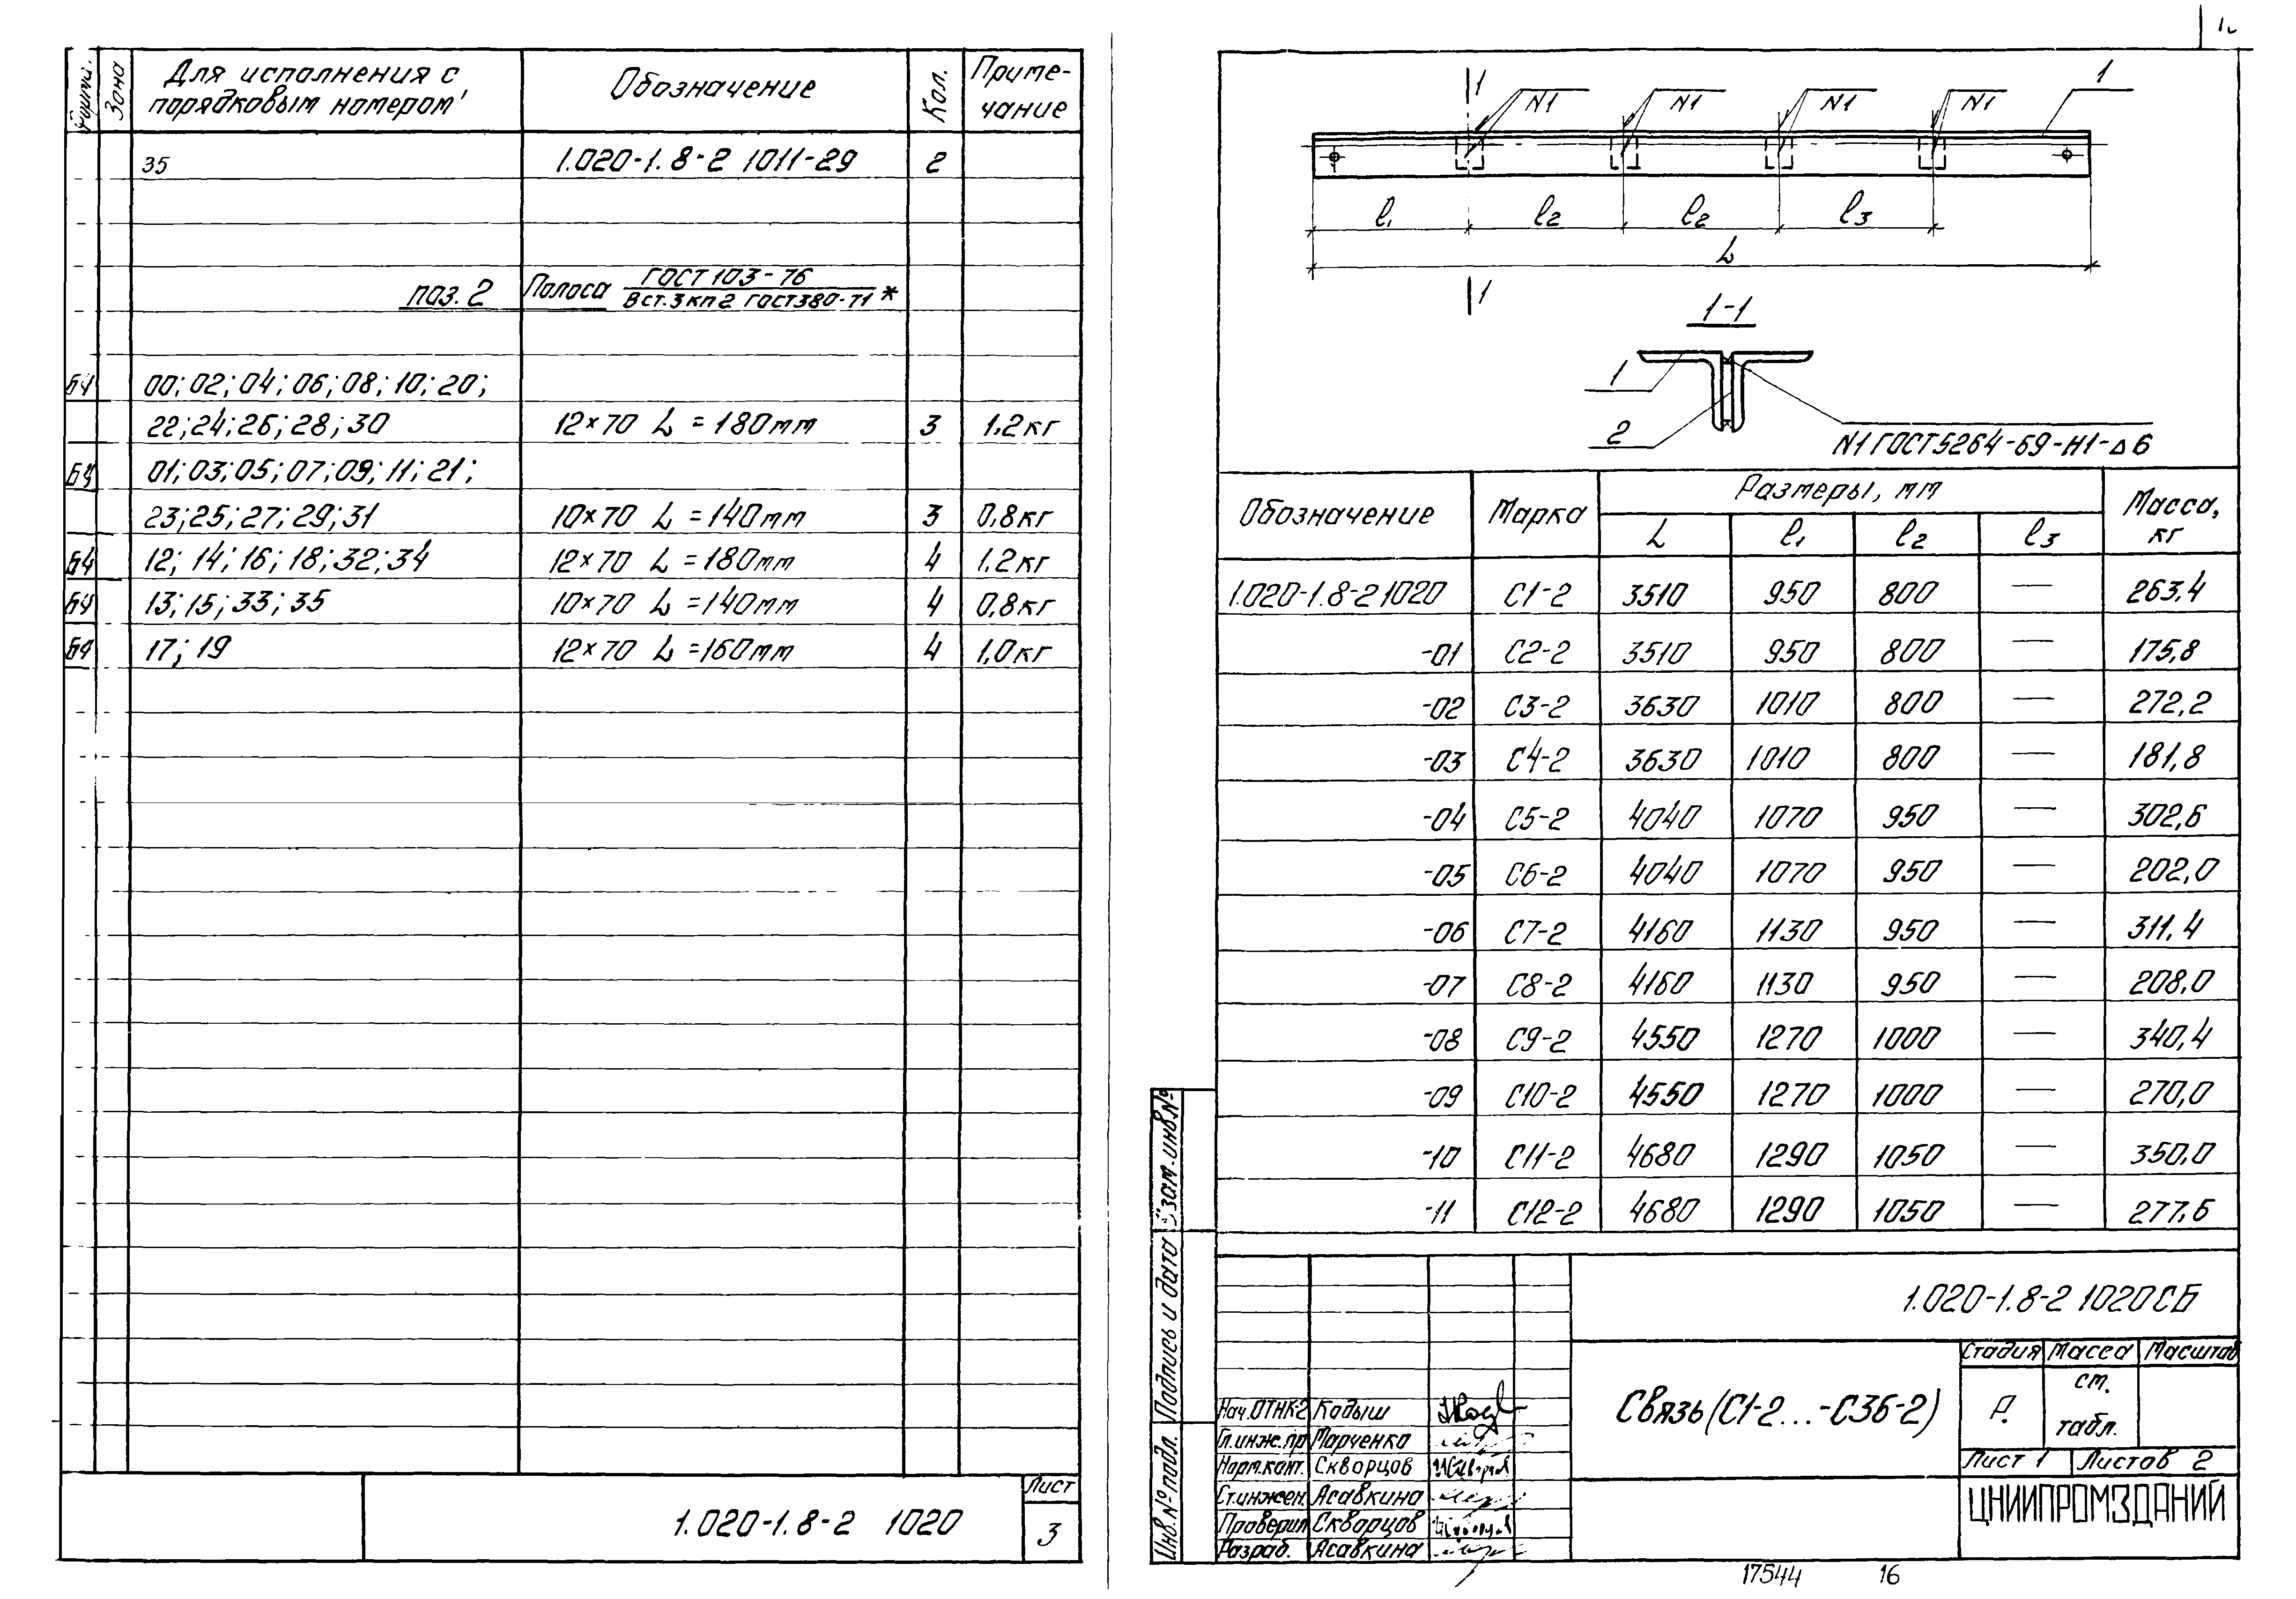 Формат. Зона Для исполнения с порядковым номером Обозначение Кол. Приме-чание
35 1.020-1.8-2 1011-29 2
поз. 2 Полоса ГОСТ 103-76
В ст.3 кп 2 ГОСТ 380-71*
БЧ 00; 02; 04; 06; 08; 10; 20;
22; 24; 26; 28; 30 12×70 L = 180мм 3 1,2кг
БЧ 01; 03; 05; 07; 09; 11; 21;
23; 25; 27; 29; 31 10×70 L = 140мм 3 0,8кг
БЧ 12; 14; 16; 18; 32; 34 12×70 L = 180мм 4 1.2кг
БЧ 13; 15; 33; 35 10×70 L = 140мм 4 0,8кг
БЧ 17; 19 12×70 L = 160мм 4 1,0кг
1.020-1.8-2 1020
Лист
3
1 N1 N1 N1 N1 1
l1 l2 l2 l3
L
1
1-1
1
2
N1 ГОСТ 5264-69-Н1-△6
Обозначение Марка Размеры, мм Масса, кг
L l1 l2 l3
1.020-1.8-2 1020 С1-2 3510 950 800 — 263,4
-01 С2-2 3510 950 800 — 175,8
-02 С3-2 3630 1010 800 — 272,2
-03 С4-2 3630 1010 800 — 181,8
-04 С5-2 4040 1070 950 — 302,6
-05 С6-2 4040 1070 950 — 202,0
-06 С7-2 4160 1130 950 — 311,4
-07 С8-2 4160 1130 950 — 208,0
-08 С9-2 4550 1270 1000 — 340,4
-09 С10-2 4550 1270 1000 — 270,0
-10 С11-2 4680 1290 1050 — 350,0
-11 С12-2 4680 1290 1050 — 277,6
Взам. инв.№
Подпись и дата
Инв.№ подл.
1.020-1.8-2 1020СБ
Связь (С1-2...-С36-2)
Стадия Масса Масштаб
Р. см. табл.
Лист 1 Листов 2
ЦНИИПРОМЗДАНИЙ
Нач.ОТНК-2 Кадыш
Гл.инж.пр Марченко
Норм.конт. Скворцов
Ст.инжен. Асавкина
Проверил Скворцов
Разраб. Асавкина
17544 16